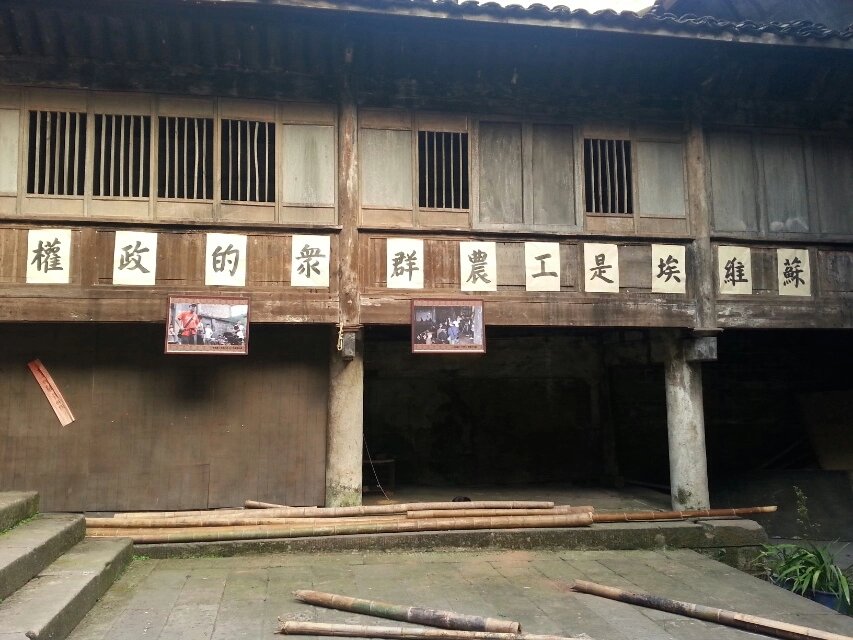 蘇維埃是工農群衆的政權